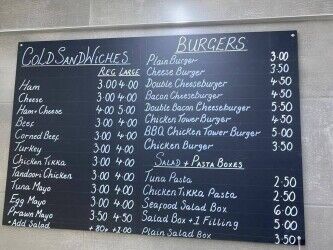 COLD SANDWICHES
REG LARGE
Ham 3.00 4.00
Cheese 3.00 4.00
Ham + Cheese 4.00 5.00
Beef 3.00 4.00
Corned Beef 3.00 4.00
Turkey 3.00 4.00
Chicken Tikka 3.00 4.00
Tandoori Chicken 3.00 4.00
Tuna Mayo 3.00 4.00
Egg Mayo 3.00 4.00
Prawn Mayo 3.50 4.50
+Add Salad
BURGERS
Plain Burger 3.00
Cheese Burger 3.50
Double Cheeseburger 4.50
Bacon Cheeseburger 4.50
Double Bacon Cheeseburger 5.50
Chicken Tower Burger 4.50
BBQ Chicken Tower Burger 5.00
Chicken Burger 3.50
SALAD + PASTA BOXES
Tuna Pasta 2.50
Chicken Tikka Pasta 2.50
Seafood Salad Box 6.00
Salad Box +1 Filling 5.00
Plain Salad Box 3.50